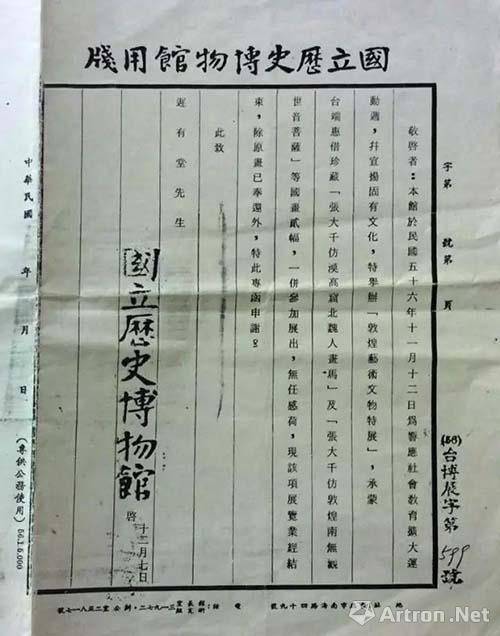 國立歷史博物館用牋
字第　號第　頁
(56)台博展字第599號
敬啓者：本館於民國五十六年十一月十二日爲響應社會教育擴大運
動週，幷宣揚固有文化，特舉辦「敦煌藝術文物特展」，承蒙
台端惠借珍藏「張大千仿漠高窟北魏人畫馬」及「張大千仿敦煌南無觀
世音菩薩」等國畫貳幅，一併參加展出，無任感荷，現該項展覽業經結
束，除原畫已奉還外，特此專函申謝。
此致
遲有堂先生
國立歷史博物館
啓
十二月七日
中華民國　年　月　日
(專供公務使用) 56.1.5.000
市南海路四十九號
電話
Artron.Net